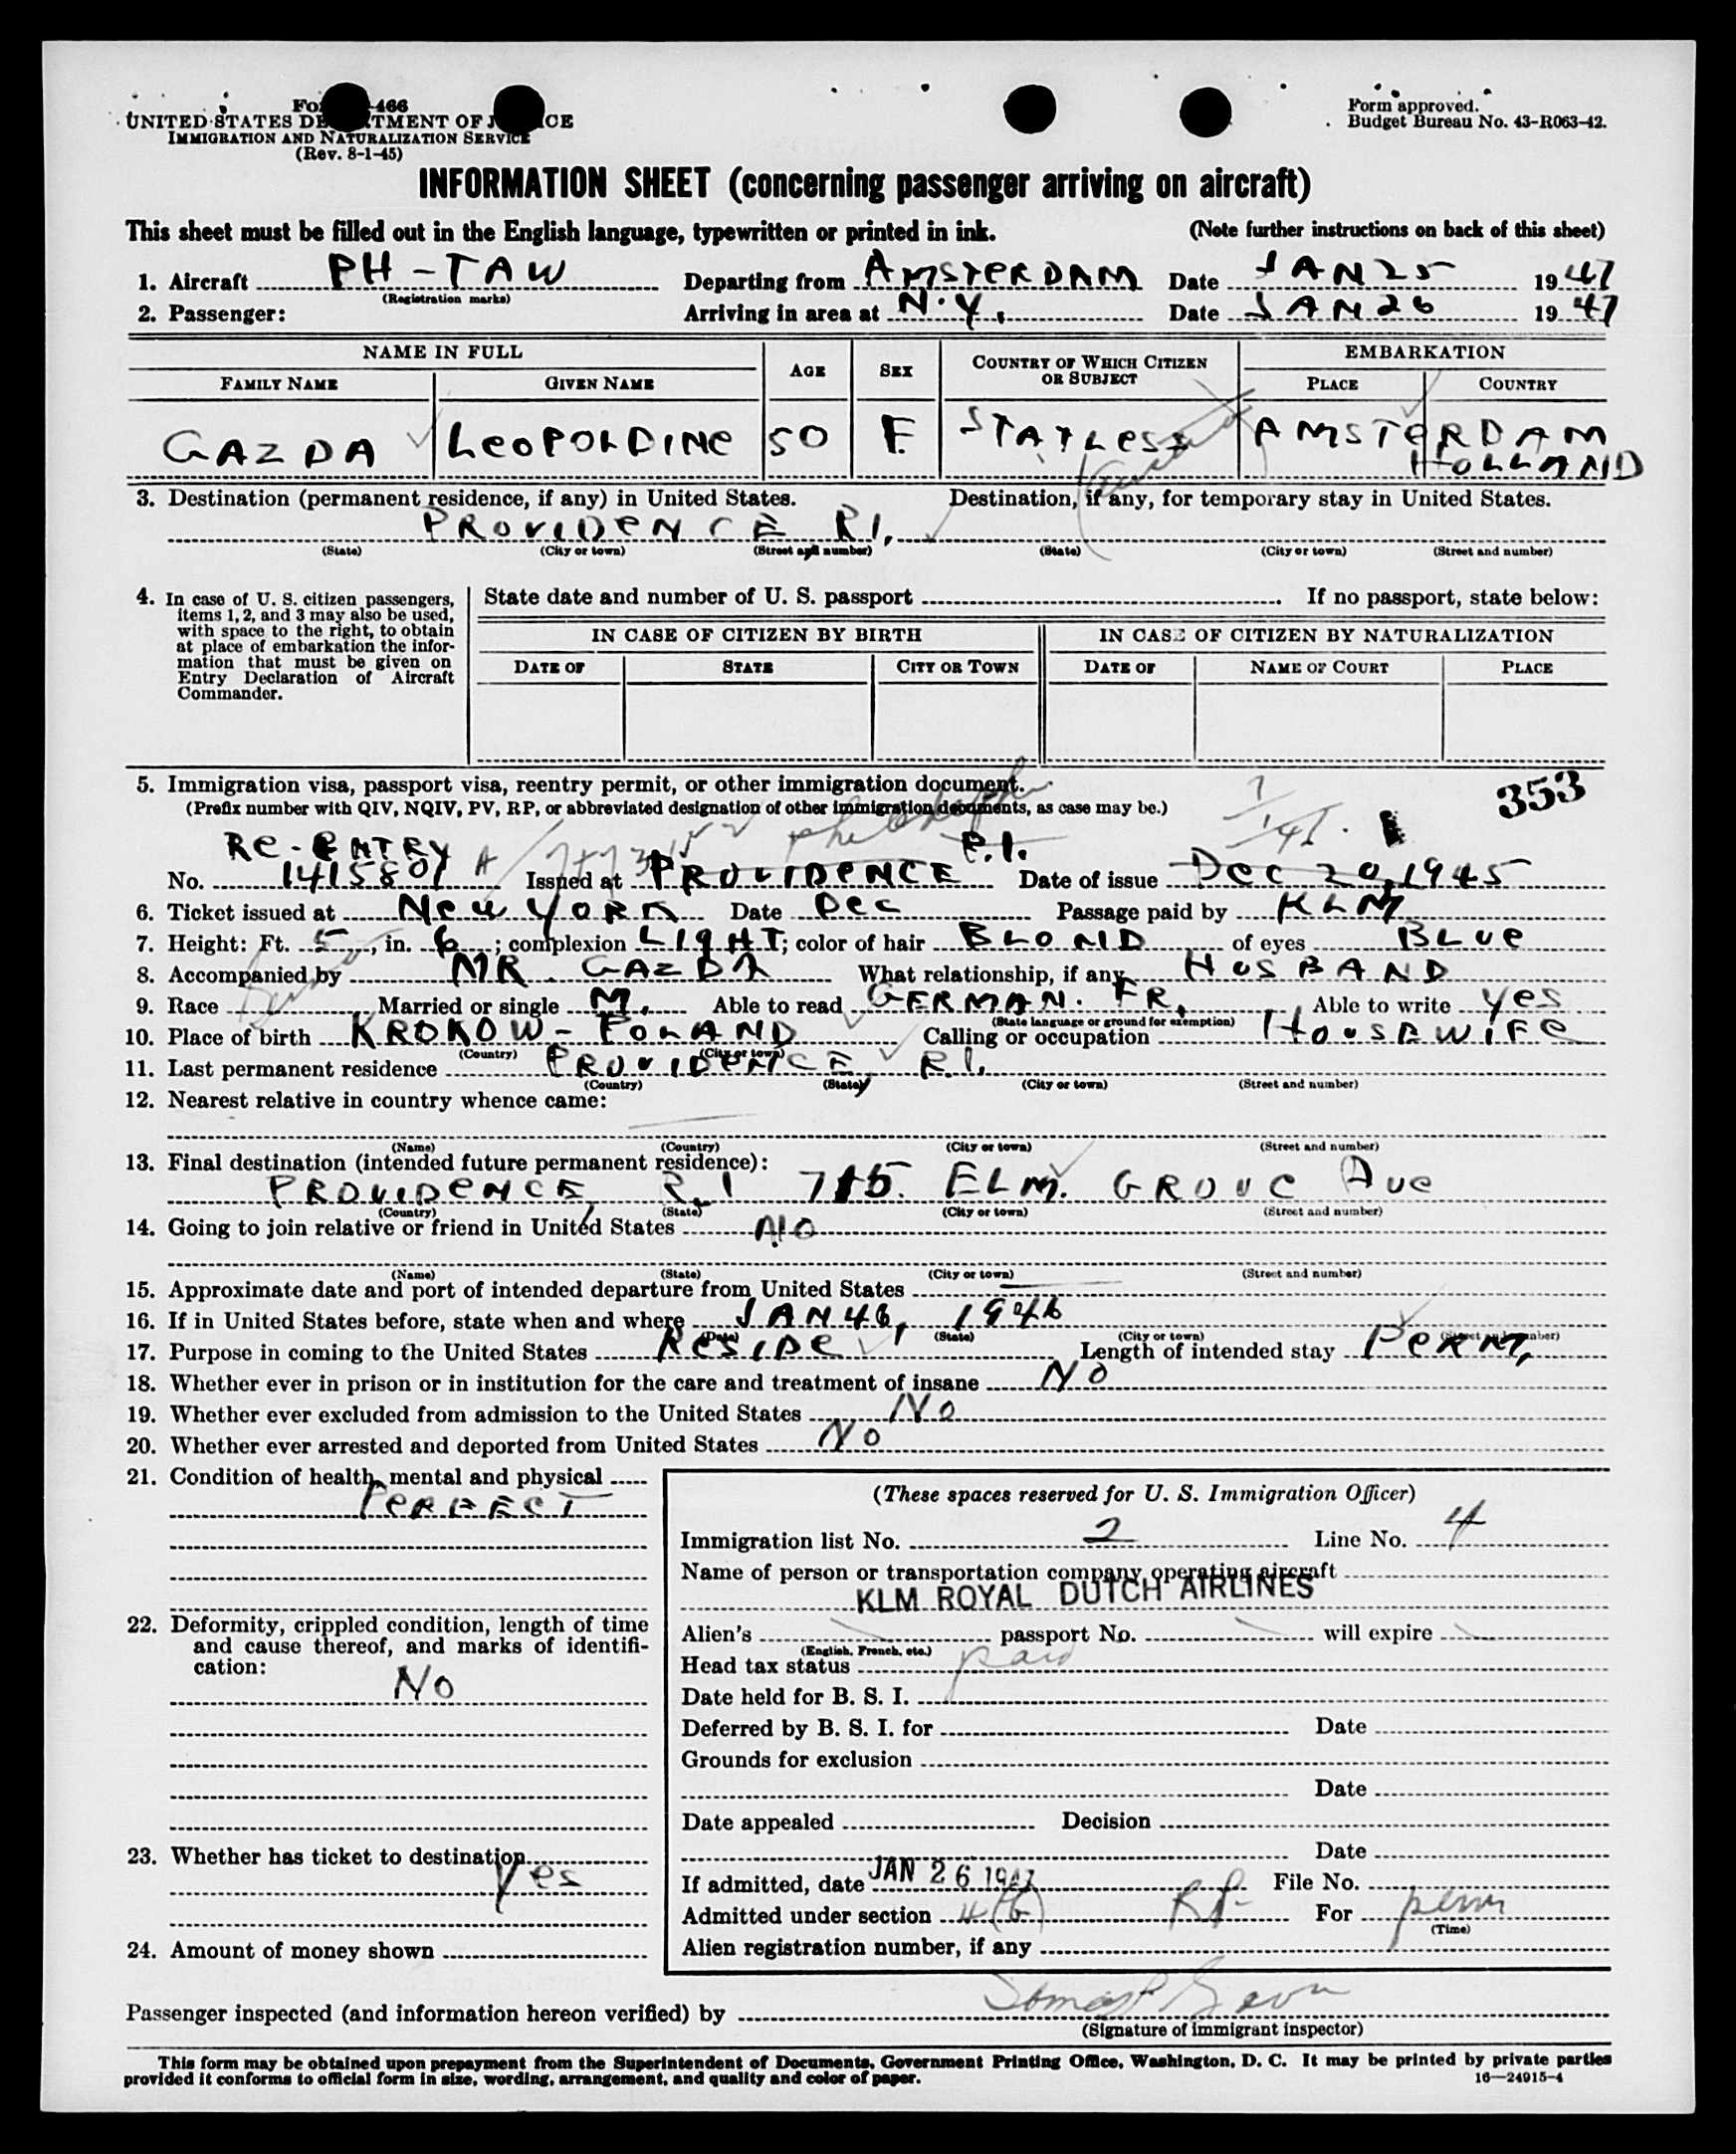 UNITED STATES DE TMENT OF J ICE
IMMIGRATION AND NATURALIZATION SERVICE
(Rev. 8-1-45)
Form approved.
Budget Bureau No. 43-R063-42.
INFORMATION SHEET (concerning passenger arriving on aircraft)
This sheet must be filled out in the English language, typewritten or printed in ink. (Note further instructions on back of this sheet)
1. Aircraft PH-TAW Departing from AMSTERDAM Date JAN 25 1947
(Registration marks)
2. Passenger: Arriving in area at N.Y. Date JAN 26 1947
NAME IN FULL AGE SEX COUNTRY OF WHICH CITIZEN OR SUBJECT EMBARKATION
FAMILY NAME GIVEN NAME PLACE COUNTRY
GAZDA LEOPOLDINE 50 F. STATLESS AMSTERDAM
HOLLAND
3. Destination (permanent residence, if any) in United States. Destination, if any, for temporary stay in United States.
PROVIDENCE RI.
(State) (City or town) (Street and number) (State) (City or town) (Street and number)
4. In case of U. S. citizen passengers, items 1, 2, and 3 may also be used, with space to the right, to obtain at place of embarkation the information that must be given on Entry Declaration of Aircraft Commander.
State date and number of U. S. passport . If no passport, state below:
IN CASE OF CITIZEN BY BIRTH IN CASE OF CITIZEN BY NATURALIZATION
DATE OF STATE CITY OR TOWN DATE OF NAME OF COURT PLACE
5. Immigration visa, passport visa, reentry permit, or other immigration document. 353
(Prefix number with QIV, NQIV, PV, RP, or abbreviated designation of other immigration documents, as case may be.)
RE-ENTRY R.I.
No. 1415801 Issued at PROVIDENCE Date of issue DEC 20, 1945
6. Ticket issued at NEW YORK Date DEC Passage paid by KLM
7. Height: Ft. 5, in. 6; complexion LIGHT; color of hair BLOND of eyes BLUE
8. Accompanied by MR. GAZDA What relationship, if any HUSBAND
9. Race Married or single M. Able to read GERMAN. FR. Able to write YES
(State language or ground for exemption)
10. Place of birth KROKOW - POLAND Calling or occupation HOUSEWIFE
(Country) (City or town)
11. Last permanent residence PROVIDENCE, R.I.
(Country) (State) (City or town) (Street and number)
12. Nearest relative in country whence came:
(Name) (Country) (City or town) (Street and number)
13. Final destination (intended future permanent residence):
PROVIDENCE R.I 715. ELM. GROVE AVE
(Country) (State) (City or town) (Street and number)
14. Going to join relative or friend in United States NO
(Name) (State) (City or town) (Street and number)
15. Approximate date and port of intended departure from United States
16. If in United States before, state when and where JAN 46, 1946
(Date) (State) (City or town) (Street and number)
17. Purpose in coming to the United States RESIDE Length of intended stay PERM,
18. Whether ever in prison or in institution for the care and treatment of insane NO
19. Whether ever excluded from admission to the United States NO
20. Whether ever arrested and deported from United States NO
21. Condition of health, mental and physical
PERFECT
22. Deformity, crippled condition, length of time and cause thereof, and marks of identification:
NO
23. Whether has ticket to destination
Yes
24. Amount of money shown
(These spaces reserved for U. S. Immigration Officer)
Immigration list No. 2 Line No. 4
Name of person or transportation company operating aircraft
KLM ROYAL DUTCH AIRLINES
Alien's passport No. will expire
(English, French, etc.)
Head tax status paid
Date held for B. S. I.
Deferred by B. S. I. for Date
Grounds for exclusion
Date
Date appealed Decision
Date
If admitted, date JAN 26 1947 File No.
Admitted under section 4(b) RP For perm
(Time)
Alien registration number, if any
Passenger inspected (and information hereon verified) by
(Signature of immigrant inspector)
This form may be obtained upon prepayment from the Superintendent of Documents, Government Printing Office, Washington, D. C. It may be printed by private parties
provided it conforms to official form in size, wording, arrangement, and quality and color of paper. 16—24915-4